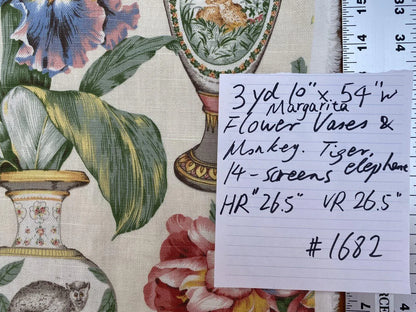 3 yd 10" x 54" w
Margarita
Flower Vases &
Monkey. Tiger.
14-screens elephane
HR" 26.5" VR 26.5"
#1682